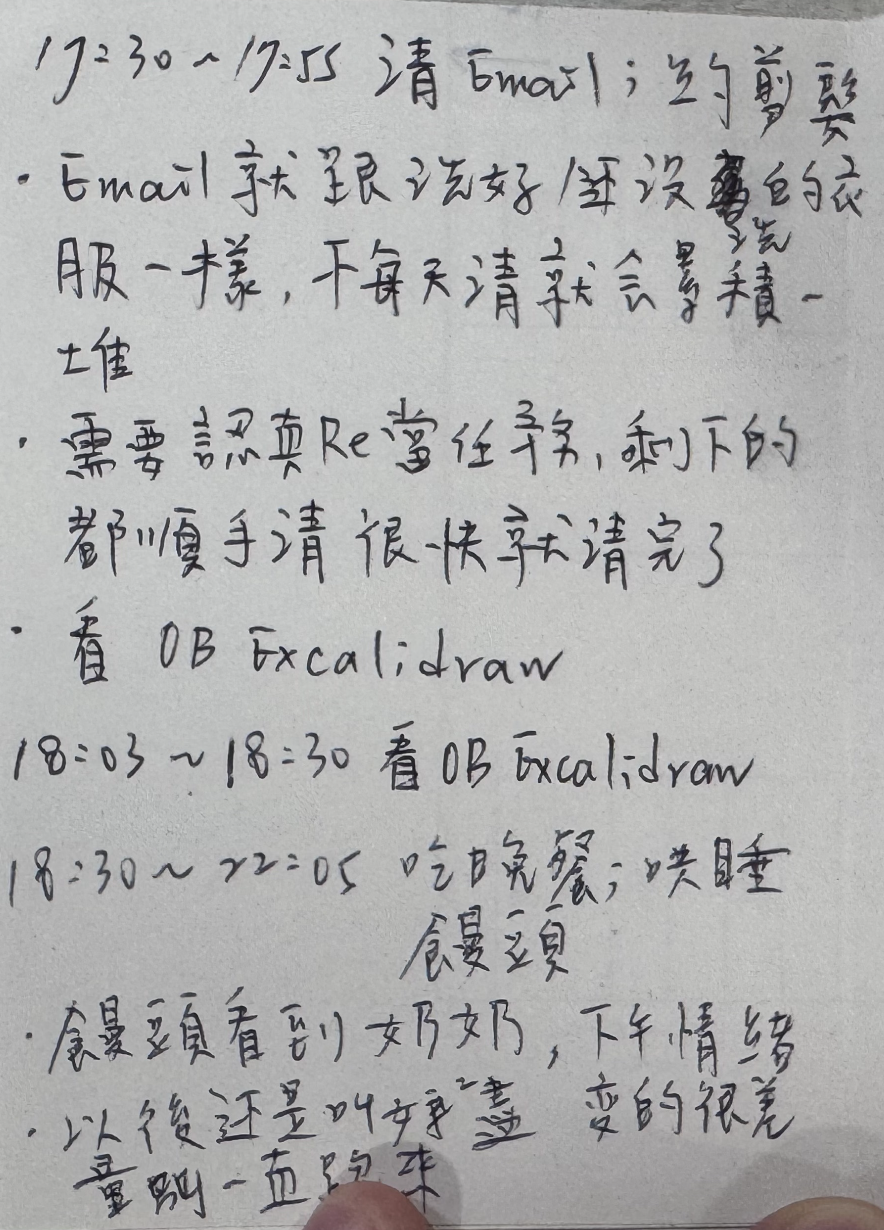 17:30~17:55 清 Email; 約剪髮
· Email 就跟洗好/還沒洗的衣
服一樣, 不每天清就会累積一
堆
· 需要認真Re當任務, 剩下的
都順手清 很快就清完了
· 看 OB Excalidraw
18:03~18:30 看OB Excalidraw
18:30~22:05 吃晚餐; 哄睡
饅頭
· 饅頭看到奶奶, 下午情緒
變的很差
· 以後還是叫 盡
量別一直 來